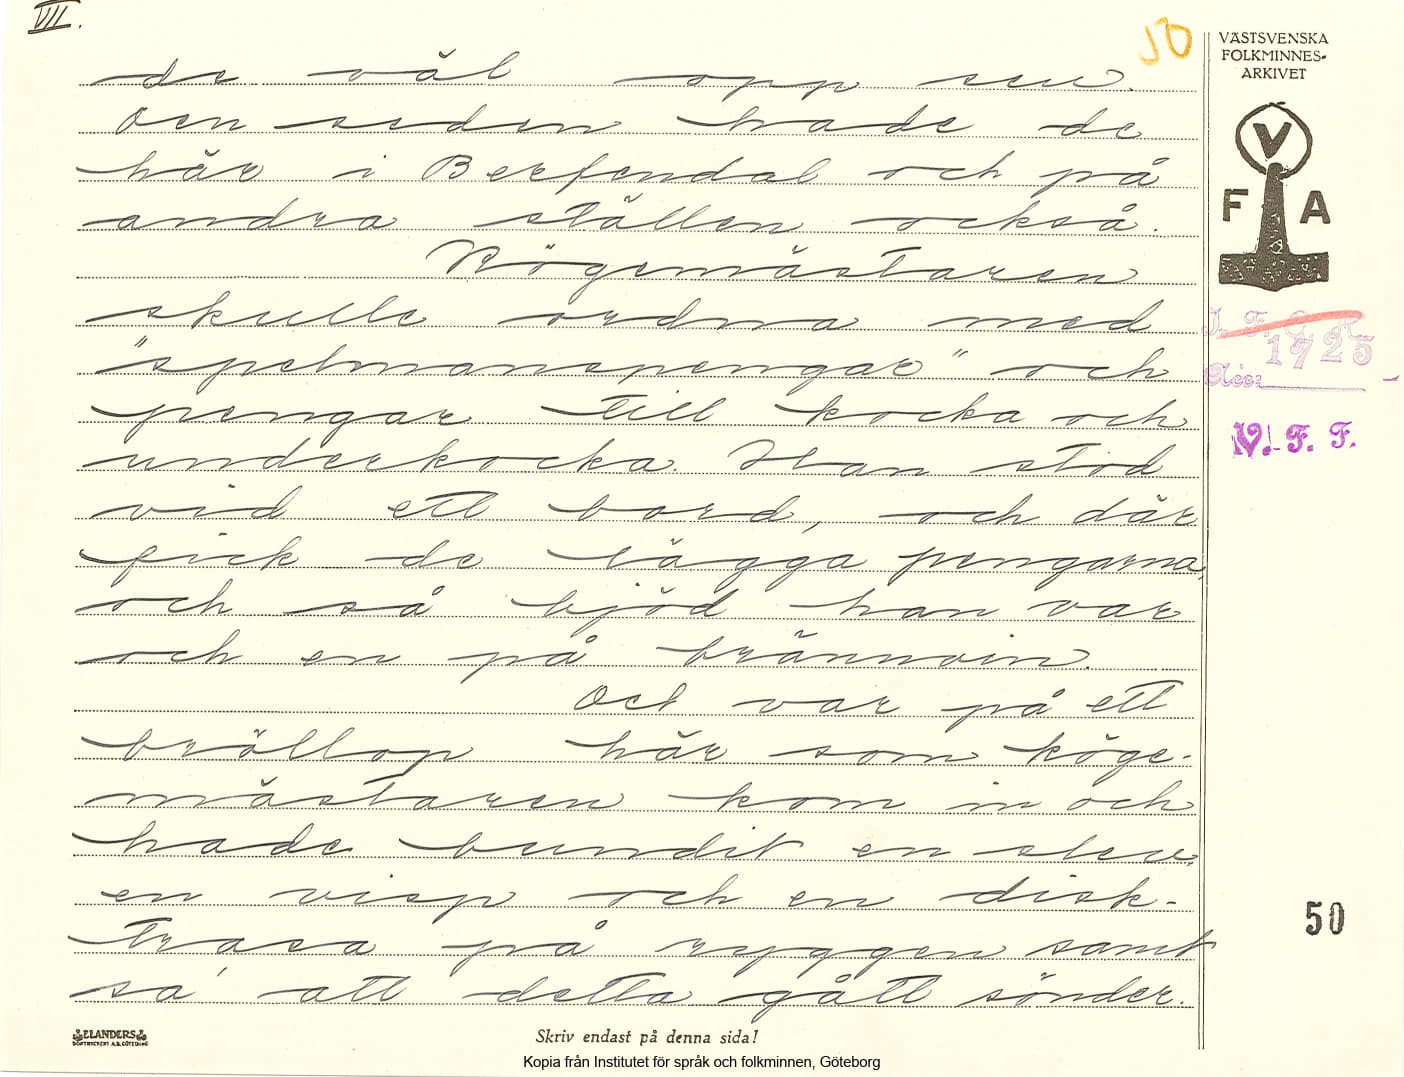 VII.
50
VÄSTSVENSKA
FOLKMINNES-
ARKIVET
V
F A
de väl opp sen.
Den seden hade de
här i Berfendal och på
andra ställen också.
Kögemästaren
skulle ordna med
"spelmanspengar" och
pengar till kocka och
underkocka. Han stod
vid ett bord, och där
fick de lägga pengarna,
och så bjöd han var
och en på brännvin.
Det var på ett
bröllop här som köge-
mästaren kom in och
hade bundit en slev,
en visp och en disk-
trasa på ryggen samt
sa att detta gått sönder.
I. F. G. H.
1725
Acc:
V. F. F.
50
ELANDERS
BOKTRYCKERI A.B. GÖTEBORG
Skriv endast på denna sida!
Kopia från Institutet för språk och folkminnen, Göteborg